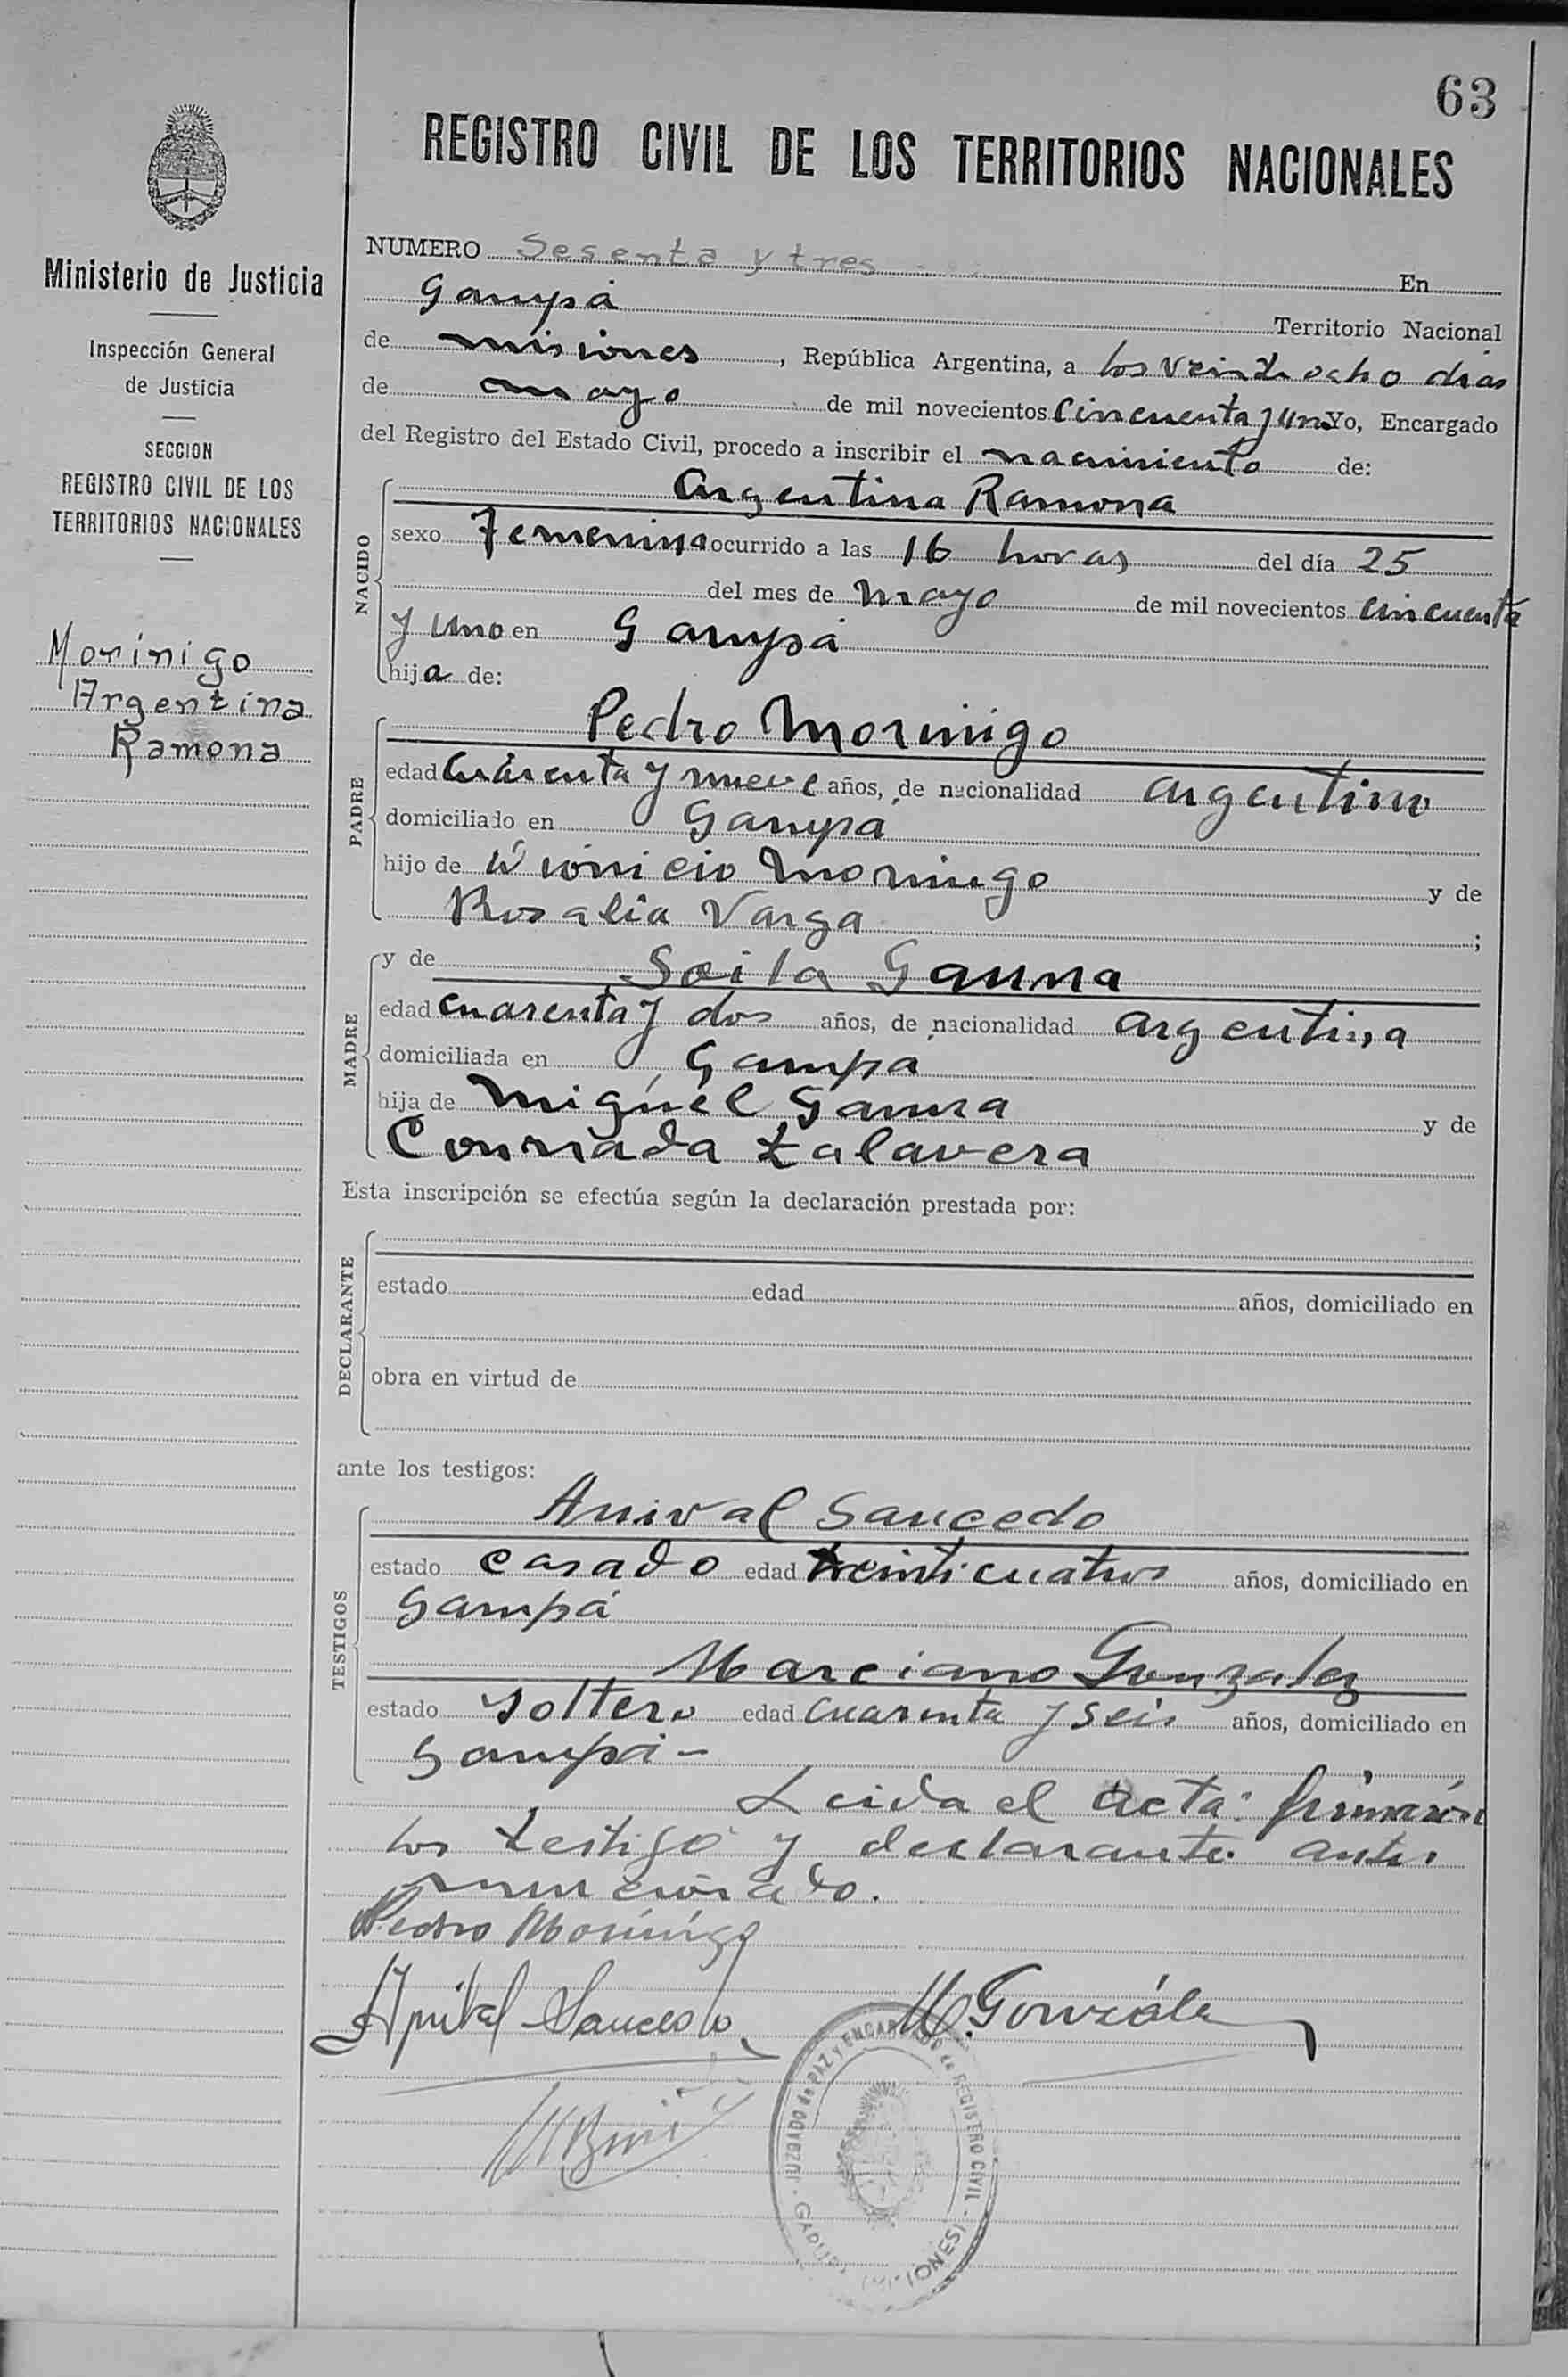 63
REGISTRO CIVIL DE LOS TERRITORIOS NACIONALES
Ministerio de Justicia
Inspección General
de Justicia
SECCION
REGISTRO CIVIL DE LOS
TERRITORIOS NACIONALES
Morinigo
Argentina
Ramona
NUMERO Sesenta y tres En
Garupá Territorio Nacional
de misiones, República Argentina, a los veintiocho dias
de mayo de mil novecientos cincuenta y uno Yo, Encargado
del Registro del Estado Civil, procedo a inscribir el nacimiento de:
NACIDO
Argentina Ramona
sexo Femenino ocurrido a las 16 horas del día 25
del mes de Mayo de mil novecientos cincuenta
y uno en Garupá
hija de:
PADRE
Pedro Morinigo
edad cuarenta y nueve años, de nacionalidad argentino
domiciliado en Garupá
hijo de Dionicio Morinigo y de
Rosalia Varga ;
MADRE
y de Soila Gauna
edad cuarenta y dos años, de nacionalidad argentina
domiciliada en Garupá
hija de Miguel Gauna y de
Conrrada Zalavera
Esta inscripción se efectúa según la declaración prestada por:
DECLARANTE
estado edad años, domiciliado en
obra en virtud de
ante los testigos:
TESTIGOS
Anival Saucedo
estado casado edad treinticuatro años, domiciliado en
Garupá
Marciano Gonzalez
estado soltero edad cuarenta y seis años, domiciliado en
Garupá -
Leida el acta firmaron
los testigo y declarante antes
mencionado.
Pedro Morinigo
Anibal Saucedo
M. González
JUZGADO de PAZ y ENCARGADO de REGISTRO CIVIL - GARUPA (MISIONES)